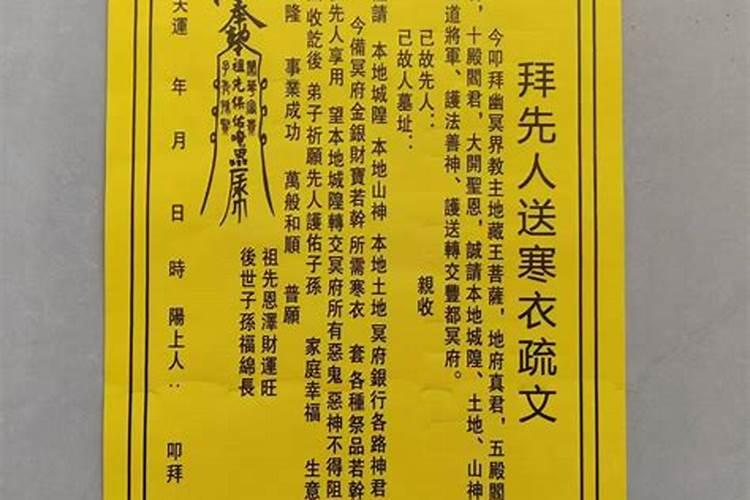 拜先人送寒衣疏文
今叩拜幽冥界教主地藏王菩薩，地府真君，五殿閻
，十殿閻君，大開聖恩，誠請本地城隍、土地、山神
道將軍、護法善神、護送轉交豐都冥府。
己故先人：　親收
己故人墓址：
請 本地城隍 本地山神 本地土地 冥府銀行各路神君
今備冥府金銀財寶若幹 所需寒衣 套 各種祭品若幹
先人享用 望本地城隍轉交冥府所有惡鬼 惡神不得阻
收訖後 弟子祈願先人護佑子孫 家庭幸福 生意
隆 事業成功 萬般和順 普願
祖先恩澤財運旺
後世子孫福綿長
奉勅
祖先保佑
天運 年 月 日 時 陽上人： 叩拜